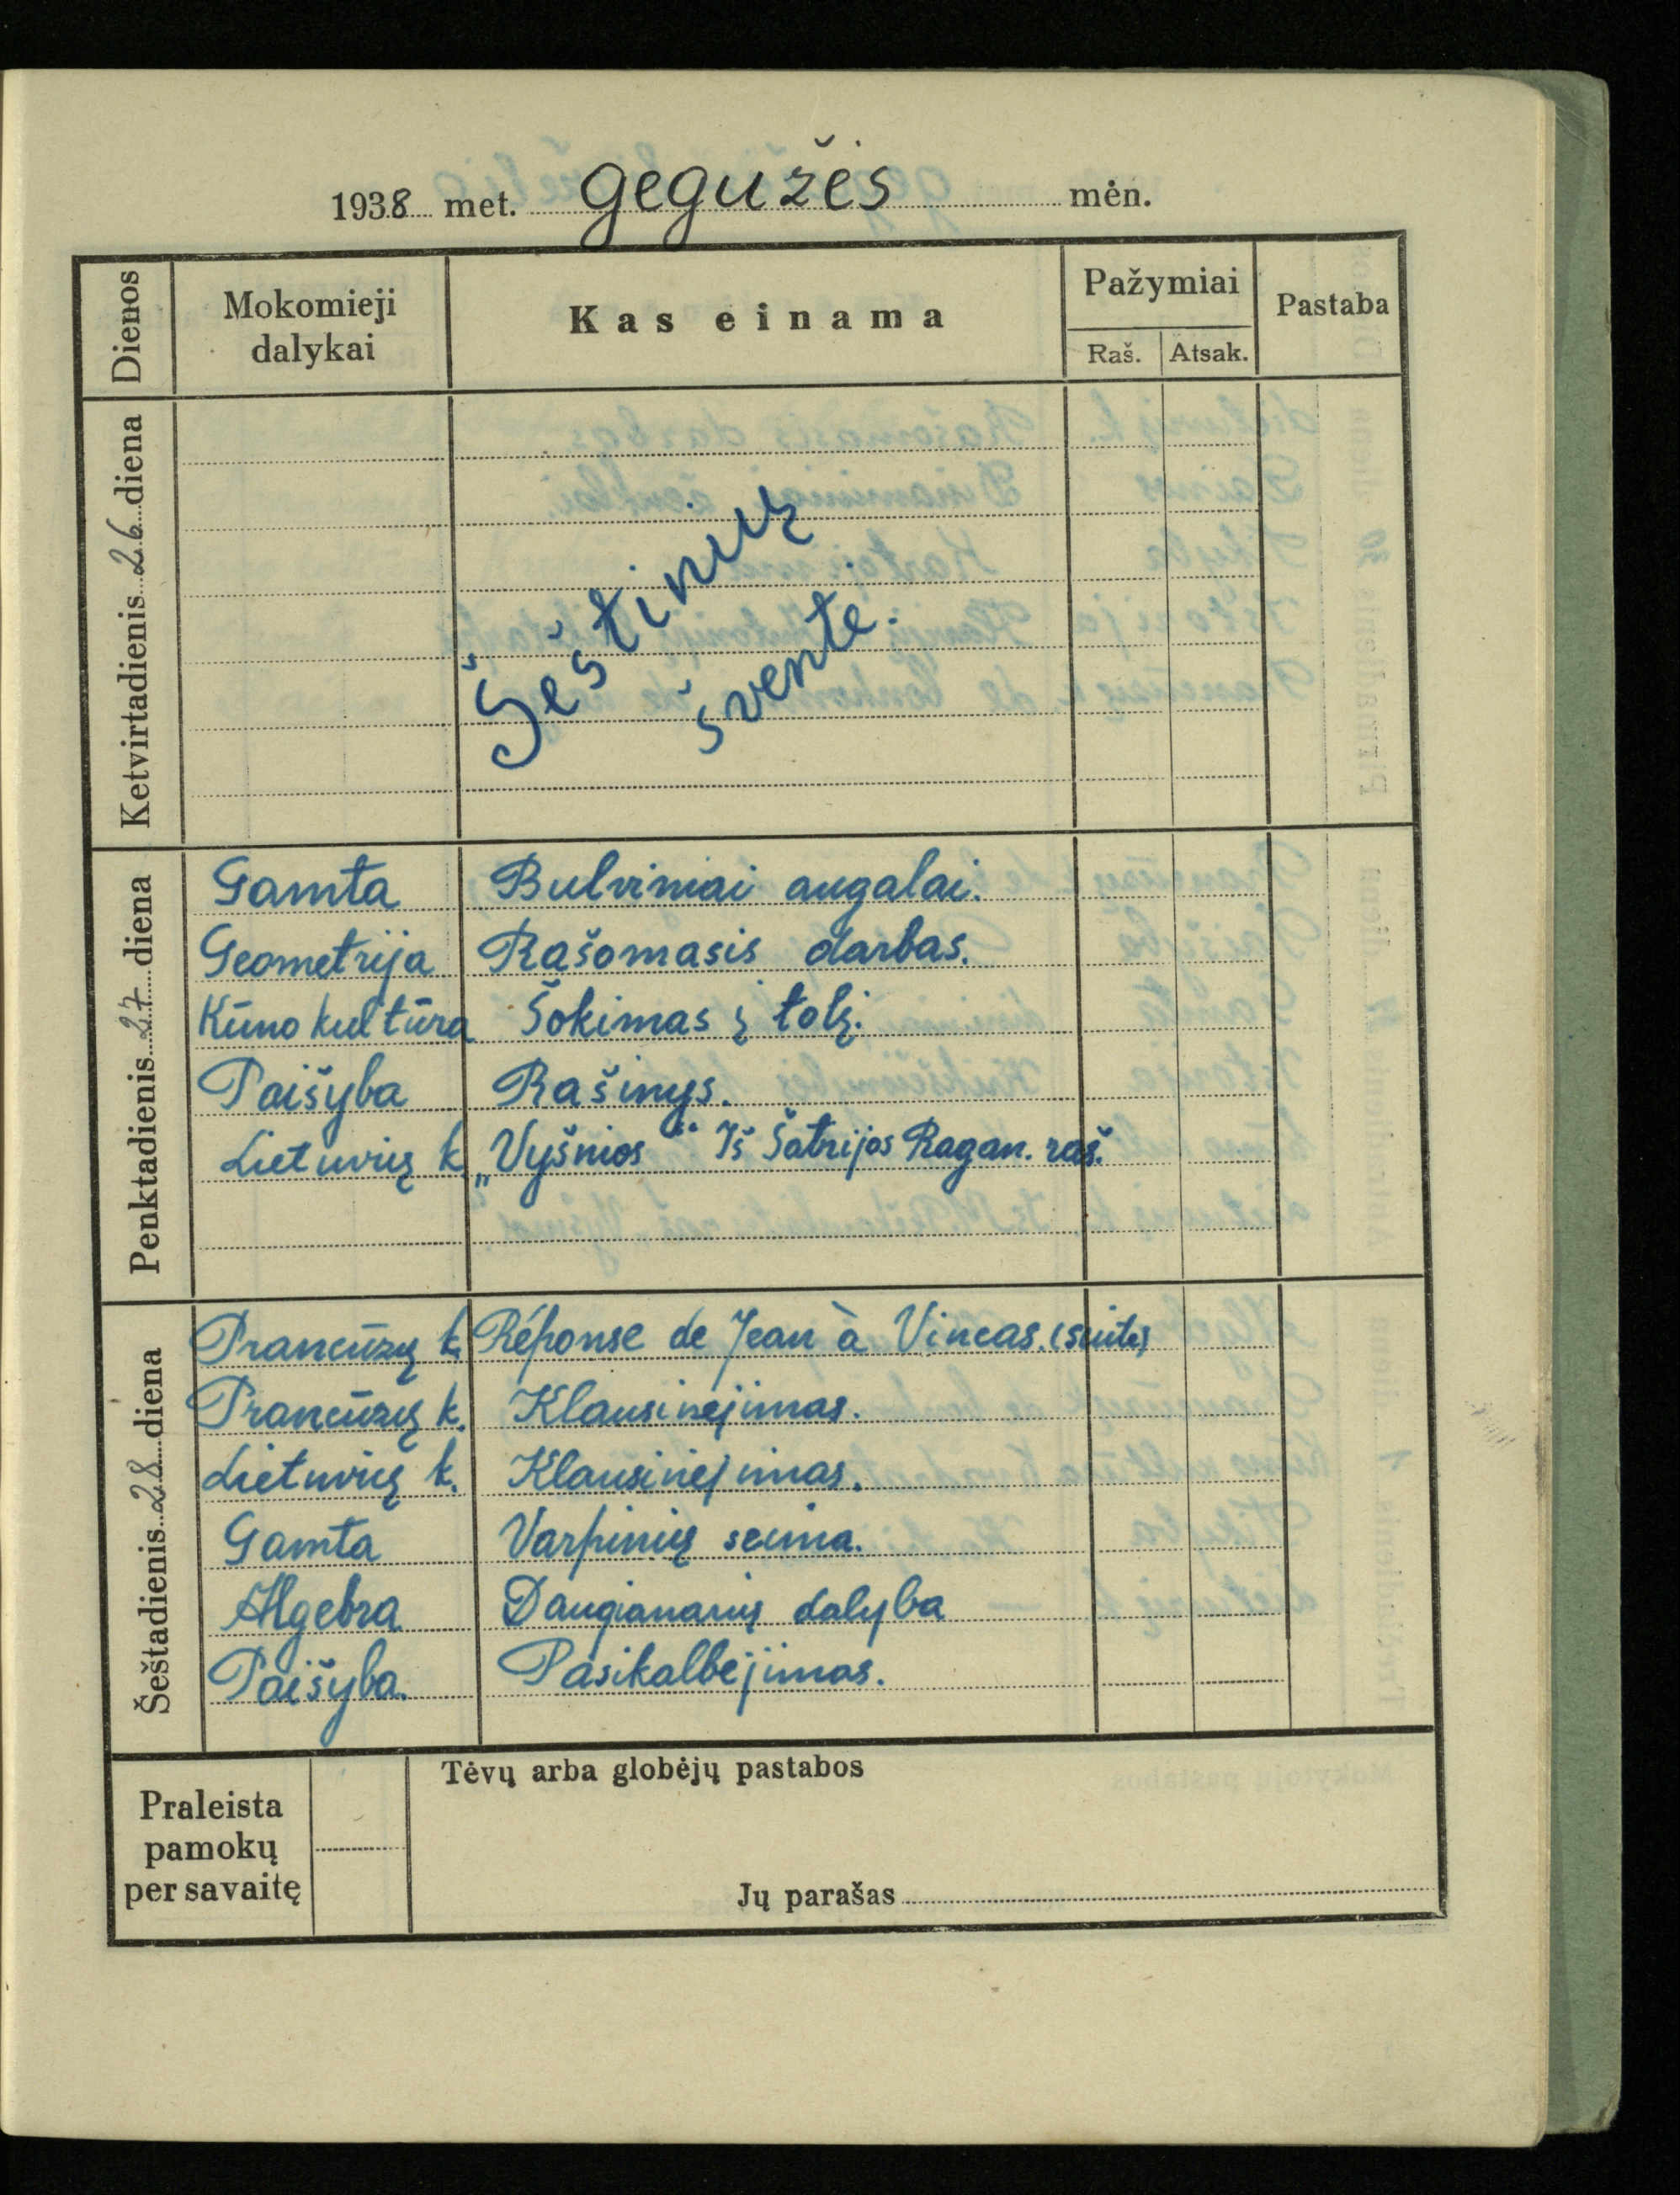 1938 met. gegužės mėn.
Dienos
Mokomieji
dalykai
Kas einama
Pažymiai
Raš. Atsak.
Pastaba
Ketvirtadienis 26 diena
Šeštinių
šventė.
Penktadienis 27 diena
Gamta Bulviniai augalai.
Geometrija Rašomasis darbas.
Kūno kultūra Šokimas į tolį.
Paišyba Rašinys.
Lietuvių k. „Vyšnios“ Iš Šatrijos Ragan. raš.
Šeštadienis 28 diena
Prancūzų k. Réponse de Jean à Vincas. (suite)
Prancūzų k. Klausinėjimas.
Lietuvių k. Klausinėjimas.
Gamta Varpinių šeima.
Algebra Daugianarių dalyba
Paišyba. Pasikalbėjimas.
Praleista
pamokų
per savaitę
Tėvų arba globėjų pastabos
Jų parašas